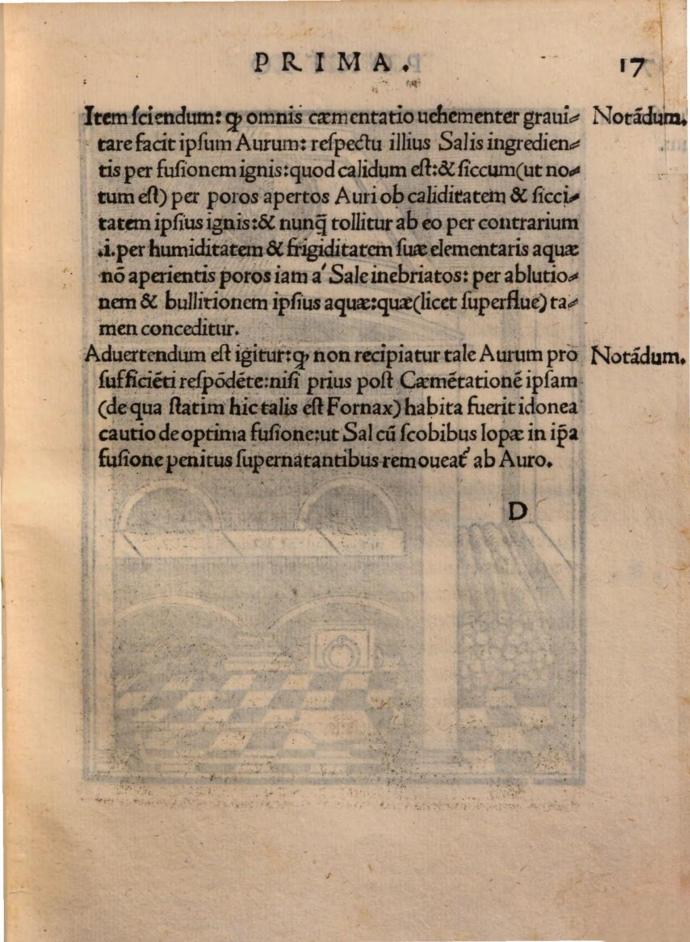 PRIMA.
17
Item sciendum: ꝙ omnis cæmentatio uehementer graui⸗ Notãdum.
tare facit ipsum Aurum: respectu illius Salis ingredien⸗
tis per fusionem ignis: quod calidum est: & siccum (ut no⸗
tum est) per poros apertos Auri ob caliditatem & sicci⸗
tatem ipsius ignis: & nunq̃ tollitur ab eo per contrarium
.i. per humiditatem & frigiditatem suæ elementaris aquæ
nõ aperientis poros iam a' Sale inebriatos: per ablutio⸗
nem & bullitionem ipsius aquæ: quæ (licet superflue) ta⸗
men conceditur.
Aduertendum est igitur: ꝙ non recipiatur tale Aurum pro Notãdum.
sufficiẽti respõdẽte: nisi prius post Cæmẽtationẽ ipsam
(de qua statim hic talis est Fornax) habita fuerit idonea
cautio de optima fusione: ut Sal cũ scobibus lopæ in ip̃a
fusione penitus supernatantibus remoueat᷑ ab Auro.
D